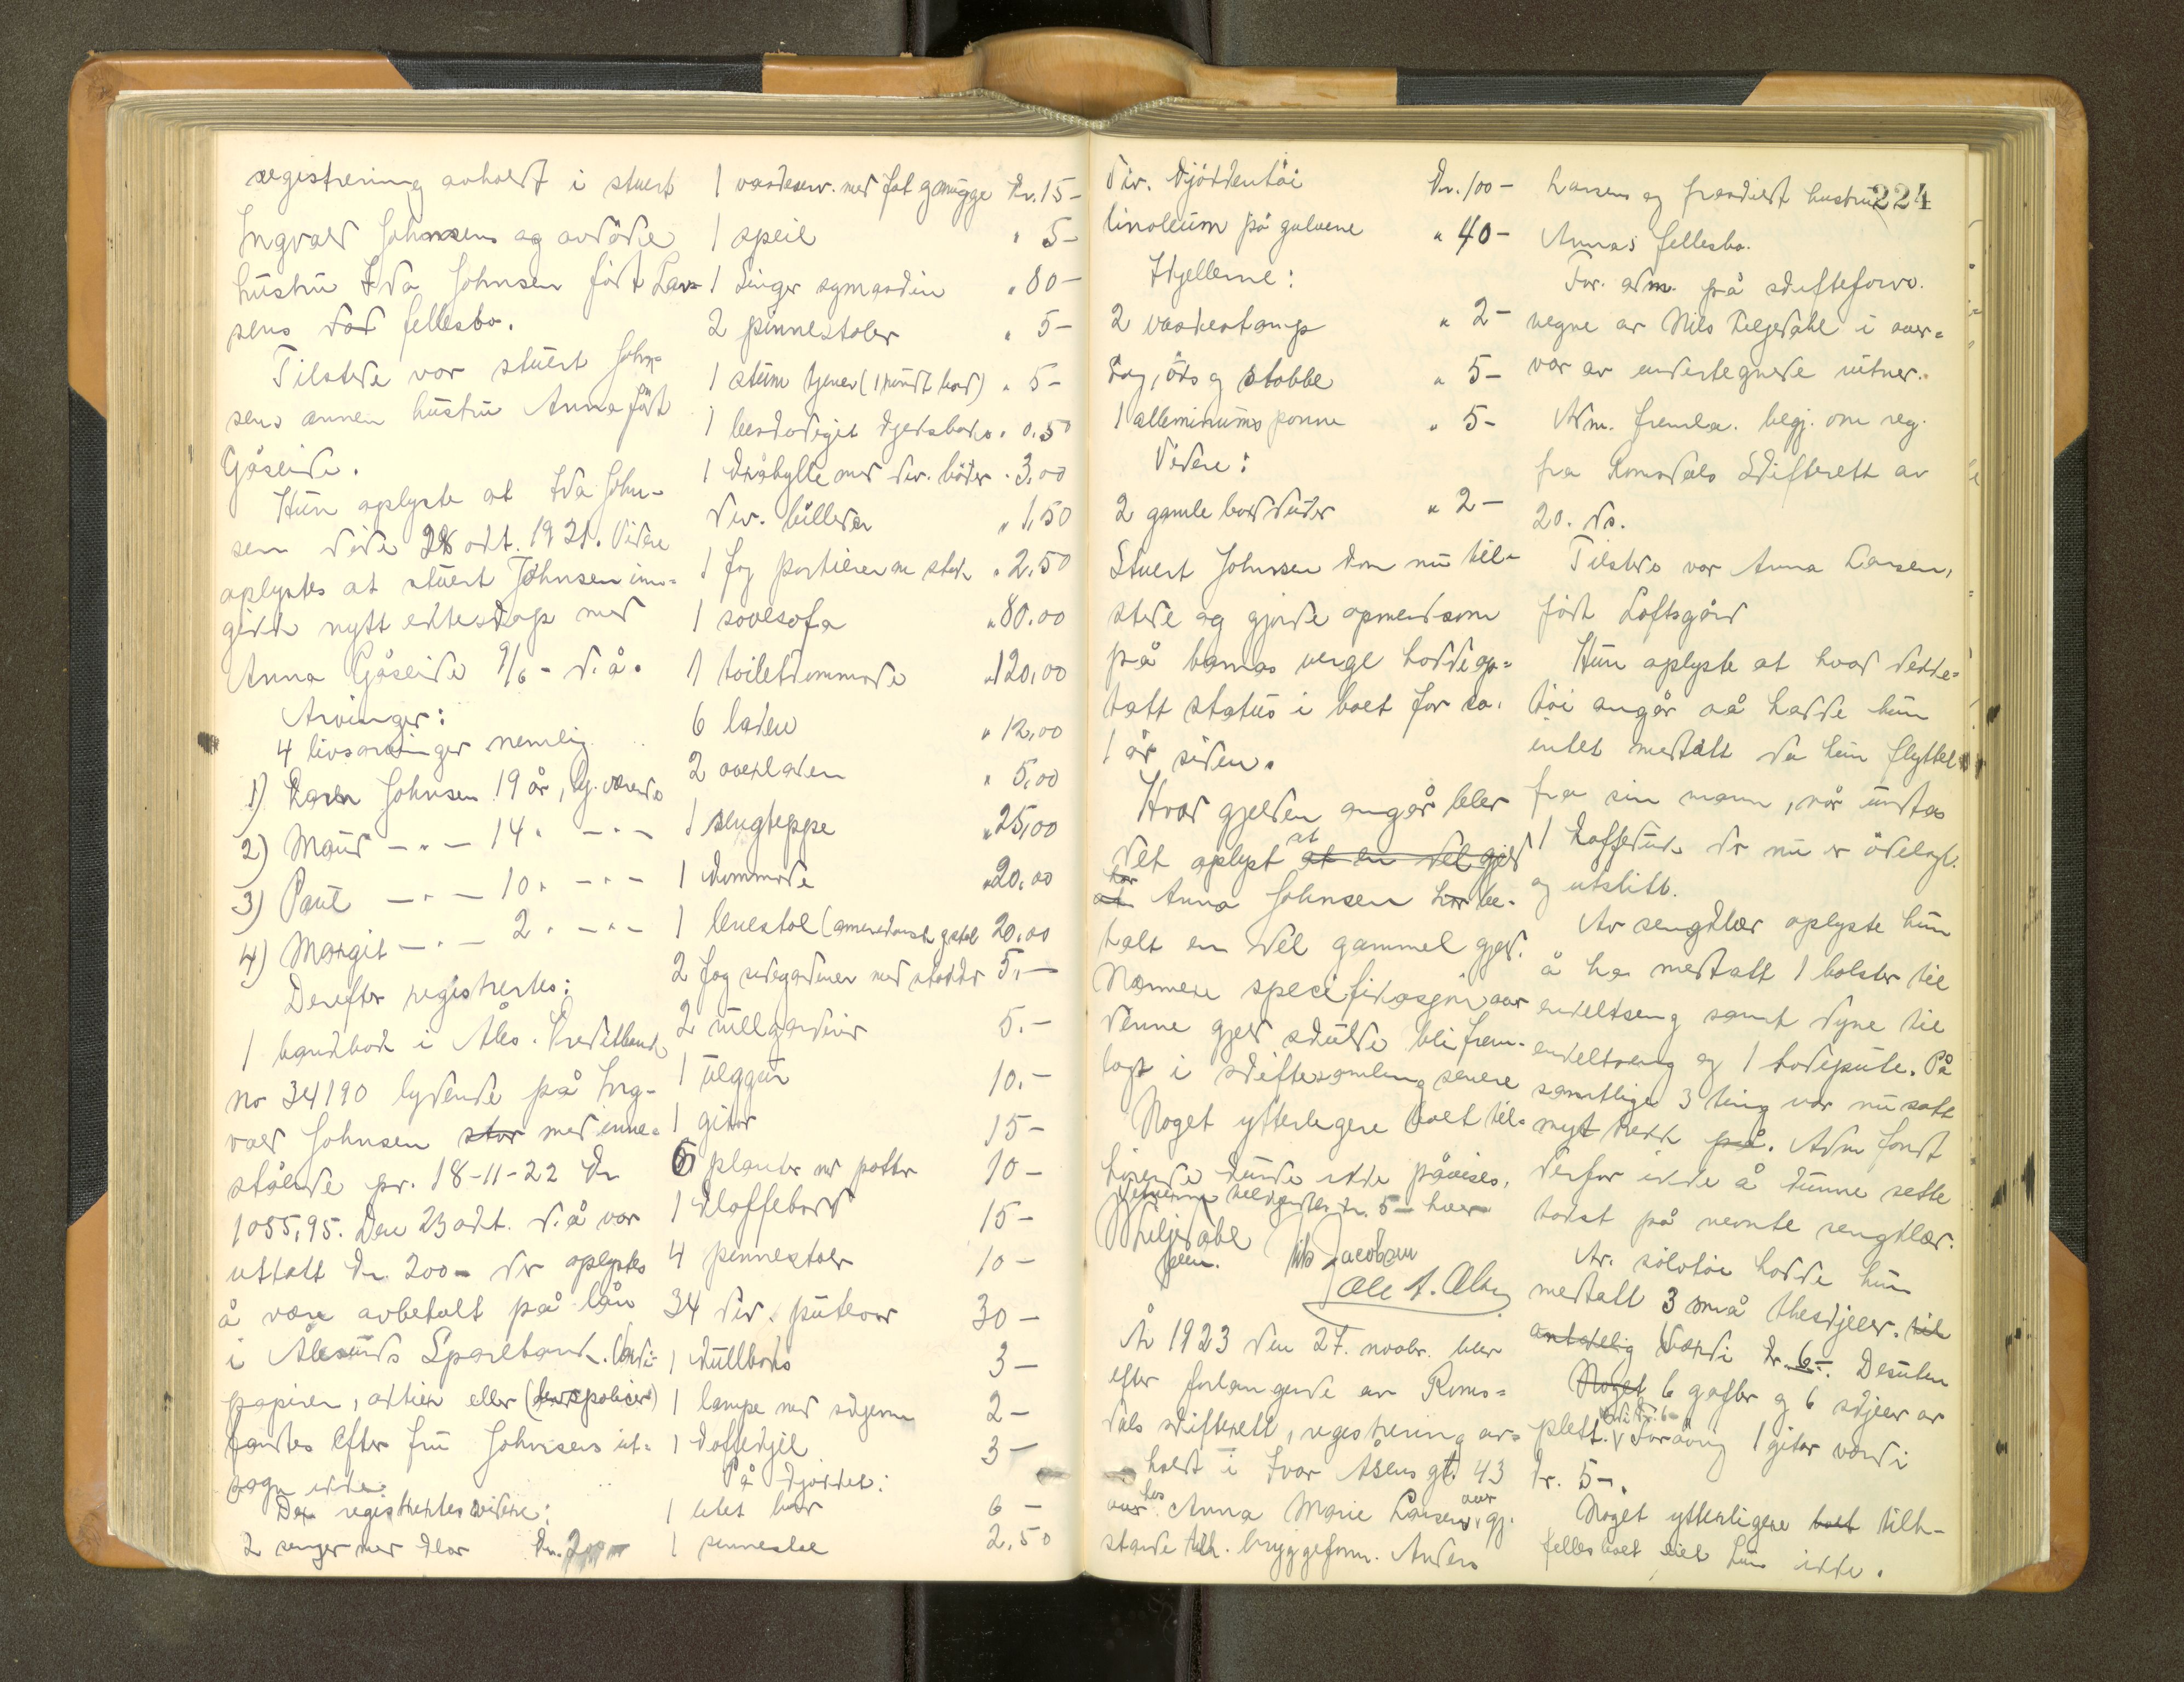 registrering avholdt i stuert
Ingvald Johnsens og avdöde
hustru Ida Johnsen födt Lar-
sens död fellesbo.
Tilstede var stuert John-
sens annen hustru Anna födt
Gåseide.
Hun oplyste at Ida John-
sen döde 28 okt. 1921. Videre
oplystes at stuert Johnsen inn-
gikk nytt ekteskap med
Anna Gåseide 9/6 - d. å.
Arvinger:
4 livsarvinger nemlig
1) Karen Johnsen 19 år, hj. værende
2) Maud — " — 14 " — " —
3) Paul — " — 10 " — " —
4) Margit — " — 2 " — " —
Derefter registrertes:
1 bankbok i Åles. Kreditbank
no 34190 lydende på Ing-
vald Johnsen stor med inne-
stående pr. 18-11-22 kr
1055,95. Den 23 okt. d. å var
uttatt kr. 200 - der oplystes
å være avbetalt på lån
i Ålesunds Sparebank. Verdi-
papirer, aktier eller (livspoliser)
fandtes efter fru Johnsens ut-
sagn ikke.
Der registrertes videre:
2 senger med klær kr. 200 -
1 vaskeserv. med fat g mugge kr. 15 -
1 speil " 5 -
1 Singer symaskin " 80 -
2 pinnestoler " 5 -
1 stum tjener (1 rundt bord) " 5 -
1 beskadiget skjenkebord " 0.50
1 bråhylle med div. böker " 3,00
div. billeder " 1,50
1 fag portierer m stok " 2,50
1 sovesofa " 80.00
1 toiletkommode " 120,00
6 laken " 12,00
2 overlaken " 5,00
1 sengteppe " 25,00
1 kommode " 20.00
1 lenestol (amerikansk gstol 20.00
2 fag sidegardiner med stokker 5,—
2 rullgardiner 5.—
1 veggur 10.—
1 gitar 15 -
6 planter med potter 10 -
1 klaffebord 15 -
4 pinnestoler 10 -
34 div. putevar 30 -
1 kullboks 3 -
1 lampe med skjerm 2 -
1 kaffekjel 3 -
På kjökket:
1 litet bord 6 -
1 pinnestol 2,50
Div. kjökkentöi kr. 100 -
linoleum på gulvene " 40 -
I kjelleren:
2 vaskestamp " 2 -
Sag, öks g stabbe " 5 -
1 alleminiums panne " 5 -
Videre:
2 gamle bordduker " 2 -
Stuert Johnsen kom nu til-
stede og gjorde opmerksom
på barnas verge hadde op-
tatt status i boet for ca.
1 år siden.
Hvad gjelden angår blev
det oplyst at at en del gjeld
at har Anna Johnsen har be-
talt en del gammel gjeld.
Nærmere specifikasjon over
denne gjeld skulde bli frem-
lagt i skiftesamling senere
Noget ytterligere boet til-
hörende kunde ikke påvises.
Vitnerne tilkjendtes kr. 5 - hver
Liljedahl
Nils Jacobsen
Ole A. Alnes
År 1923 den 27. novbr. blev
efter forlangende av Roms-
dals skifterett, registrering av-
holdt i Ivar Åsens gt. 43
over hos Anna Marie Larsens over gj.
stande tilh. bryggeform. Anders
224
Larsens og fraskilt hustru
Annas fellesbo.
For. adm. på skifteforv.
vegne av Nils Liljedahl i over-
vær av undertegnede vitner.
Adm. fremla. begj. om reg.
fra Romsdals Skifterett av
20. ds.
Tilstede var Anna Larsen,
födt Loftsgård
Hun oplyste at hvad dekke-
töi angår så hadde hun
intet medtatt da hun flyttet
fra sin mann, når undtas
1 kaffeduk der nu er ödelagt
og utslitt.
Av sengklær oplyste hun
å ha medtatt 1 bolster til
enkeltseng samt dyne til
enkeltseng og 1 hodepute. På
samtlige 3 ting var nu satt
nytt trekk på. Adm fandt
derfor ikke å kunne sette
takst på nevnte sengklær.
Av sölvtöi hadde hun
medtatt 3 små theskjeer. til
antatelig verdi kr. 6 -. Desuten
Noget 6 gafler og 6 skjeer av
plett. verdi kr. 6 - Forövrig 1 gitar verdi
kr. 5 -.
Noget ytterligere boet tilh-
fellesboet eiet hun ikke.